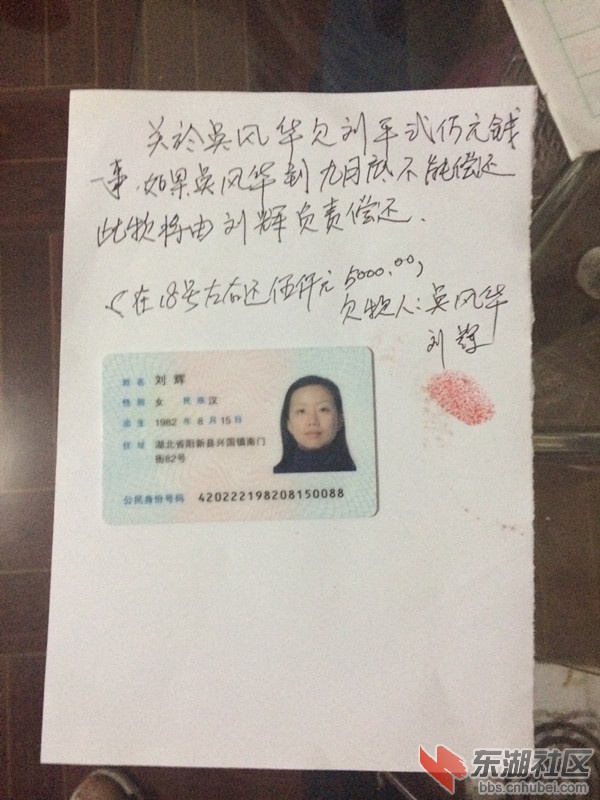 关於吴风华欠刘 弍仟元钱
一事.如果吴风华到九月底不能偿还
此款将由刘辉负责偿还.
在18号左右还伍仟元 5000.00,
欠款人:吴风华
刘辉
姓名 刘辉
性别 女 民族 汉
出生 1982 年 8 月 15 日
住址 湖北省阳新县兴国镇南门
街82号
公民身份号码 420222198208150088
东湖社区
bbs.cnhubei.com